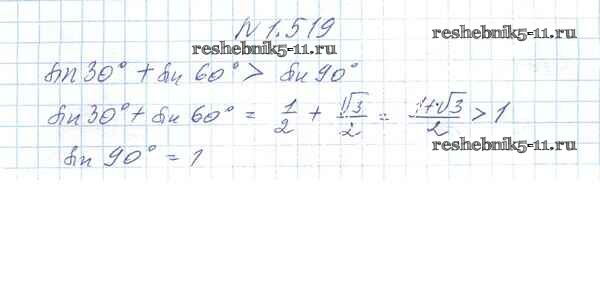 N 1.519
reshebnik5-11.ru
sin 30° + sin 60° > sin 90°
sin 30° + sin 60° = 1/2 + √3/2 = (1+√3)/2 > 1
reshebnik5-11.ru
sin 90° = 1